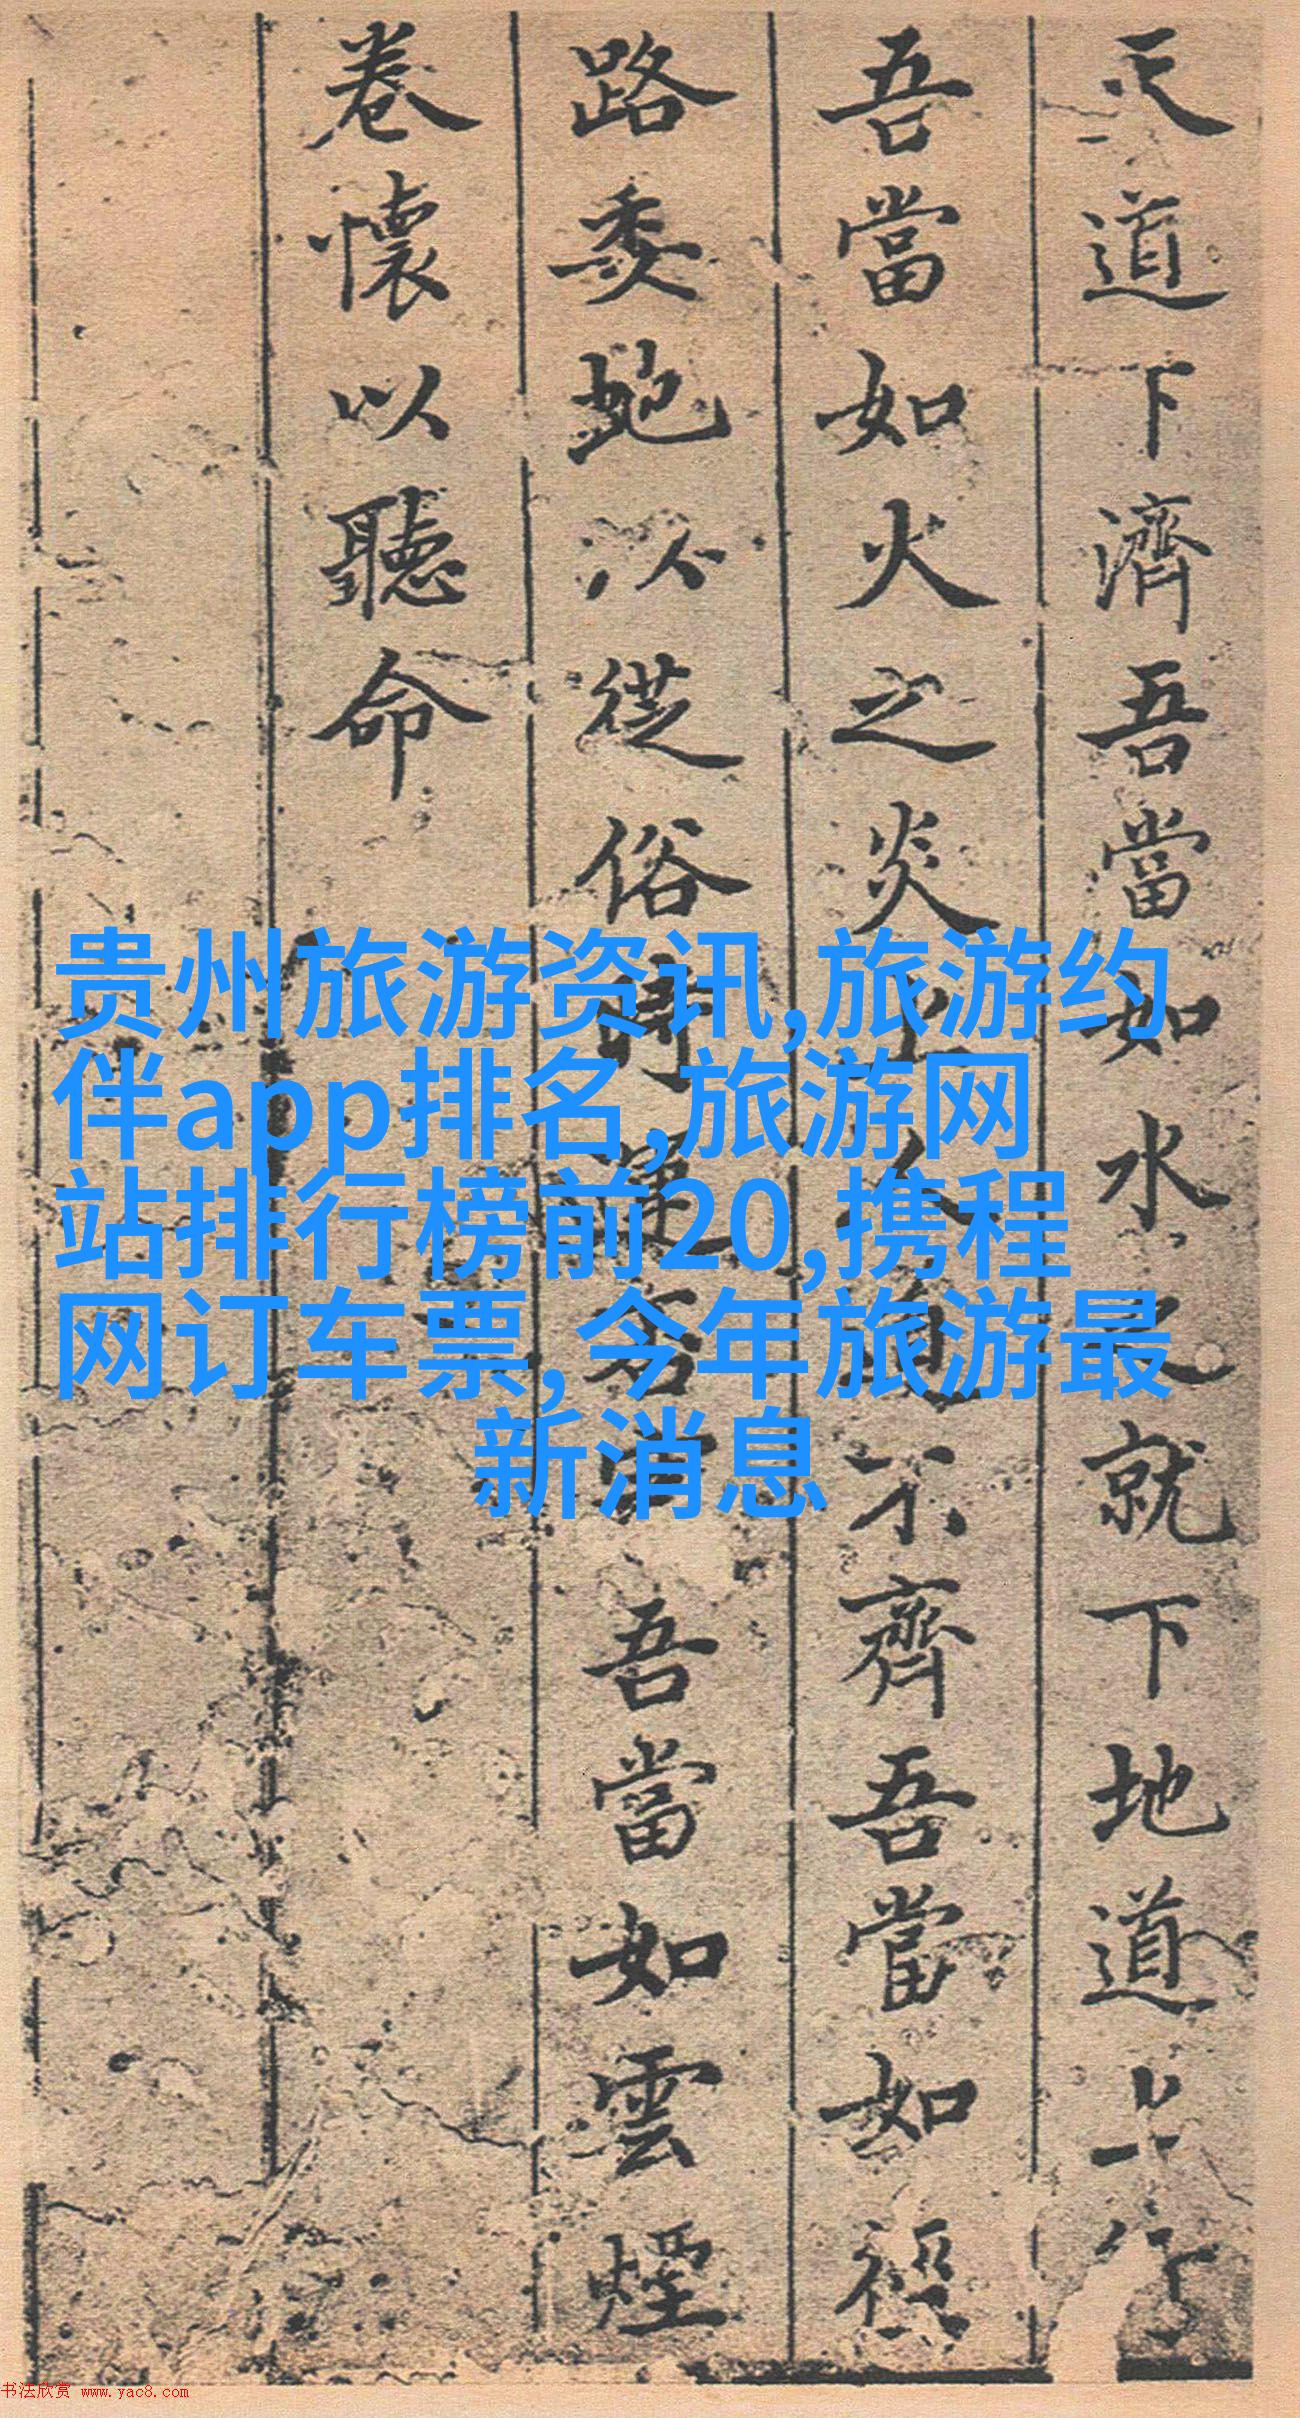 天道下濟吾當如水之就下地道上行
吾當如火之炎上人道不齊吾當如徑
路委虵以從俗時運否吾當如雲煙
卷懷以聽命
贵州旅游资讯,旅游约
伴app排名,旅游网
站排行榜前20,携程
网订车票, 今年旅游最
新消息
书法欣赏 www.yac8.com